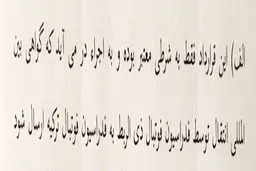 الف) این قرارداد فقط به شرطی معتبر بوده و به اجراء در می آید که گواهی بین
المللی انتقال توسط فدراسیون فوتبال ذی الربط به فدراسیون فوتبال ترکیه ارسال شود